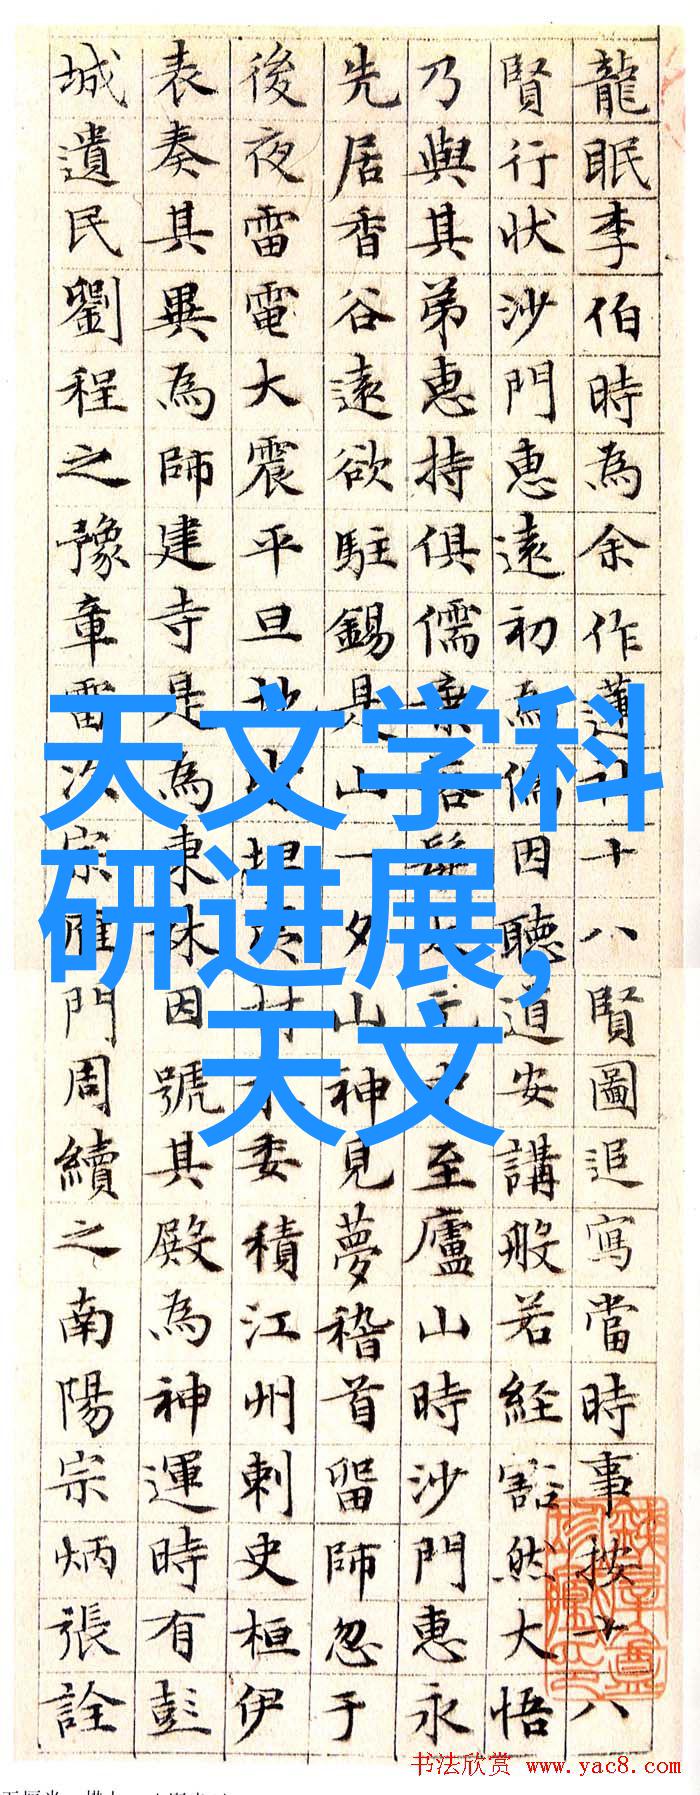 龍眠李伯時為余作蓮社十八賢圖追寫當時事按十八
賢行狀沙門惠遠初為儒因聽道安講般若經豁然大悟
乃與其弟惠持俱儒業落髮太元中至廬山時沙門惠永
先居香谷遠欲駐錫是山一夕山神見夢稽首留師忽于
後夜雷電大震平旦地皆坦夷材木委積江州刺史桓伊
表奏其異為師建寺是為東林因號其殿為神運時有彭
城遺民劉程之豫章雷次宗雁門周續之南陽宗炳張詮
天文学科
研进展,
天文
书法欣赏 www.yac8.com